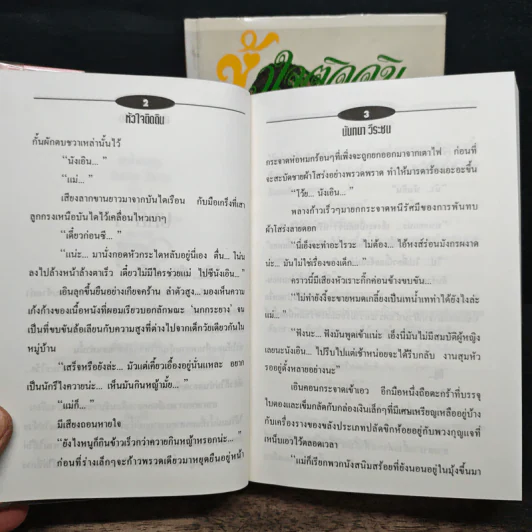 หัวใจติดดิน
2
หัวใจติดดิน
กั้นผักตบชวาเหล่านั้นไว้
“นังเอิน... ”
“แม่... ”
เสียงลากขานยาวมาจากบันไดเรือน กับมือเกร็งที่เสา
ลูกกรงเหนือบันไดไว้เคลื่อนไหวเบาๆ
“เดี๋ยวก่อนซี... ”
“แน่ะ... มานั่งกอดหัวกระไดหลับอยู่นี่เอง ตื่น... ไม่น
ลงไปล้างหน้าล้างตาเร็ว เดี๋ยวไม่มีใครช่วยแม่ ไปซีนังเอิน... ”
เอินลุกขึ้นยืนอย่างเกียจคร้าน ลำตัวสูง... มองเห็นความ
เก้งก้างของเนื้อหนังที่ผอมเรียวบอกลักษณะ ‘นกกระยาง’ จน
เป็นที่ขบขันล้อเลียนกับความสูงที่ต่างไปจากเด็กวัยเดียวกันใน
หมู่บ้าน
“เสร็จหรือยังล่ะ... มัวแต่เคี้ยวเอื้องอยู่นั่นแหละ อยาก
เป็นนักรึไงควายน่ะ... เห็นมันกินหญ้ามั้ย... ”
“แม่ก็... ”
มีเสียงถอนหายใจ
“ยังไงหนูก็กินข้าวเร็วกว่าควายกินหญ้าหรอกน่ะ... ”
ก่อนที่ร่างเล็กๆจะก้าวพรวดเดียวมาหยุดยืนอยู่หน้า
3
นันทนา วีระชน
กระจาดห่อหมกร้อนๆที่เพิ่งจะถูกยกออกมาจากเตาไฟ ก่อนที่
จะสะบัดชายผ้าโสร่งอย่างพรวดพราด ทำให้มารดาร้องเอะอะขึ้น
“โว้ย... นังเอิน... ”
พลางก้าวเร็วๆมายกกระจาดหนีรัศมีของการพันทบ
ผ้าโสร่งลายดอก
“นี่เอ็งจะทำอะไรวะ ไม่ต้อง... ไอ้หงส์ร่อนมังกรผงาด
น่ะ... มันไม่ใช่เรื่องของเด็ก... ”
คราวนี้มีเสียงหัวเราะกิ๊กค่อนข้างขบขัน...
“ไม่ทำยังงี้จะขายหมดเกลี้ยงเป็นเทน้ำเทท่าได้ยังไงล่ะ
แม่... ”
“ฟังนะ... ฟังมันพูดเข้าแน่ะ เอ็งนี่มันไม่มีสมบัติผู้หญิง
เลยนะนังเอิน... ไปรีบไปแต่เช้าหน่อยจะได้รีบกลับ งานสุมหัว
รออยู่ตั้งหลายอย่างนะ”
เอินคอนกระจาดเข้าเอว อีกมือหนึ่งถือตะกร้าที่บรรจุ
ใบตองและเข็มกลัดกับกล่องเงินเล็กๆที่มีเศษเหรียญเหลืออยู่บ้าง
กับเครื่องรางของขลังประเภทปลัดขิกห้อยอยู่กับพวงกุญแจที่
เหน็บเอวไว้ตลอดเวลา
“แม่ก็เรียกพวกนังสนิมสร้อยที่ยังนอนอยู่ในมุ้งขึ้นมา